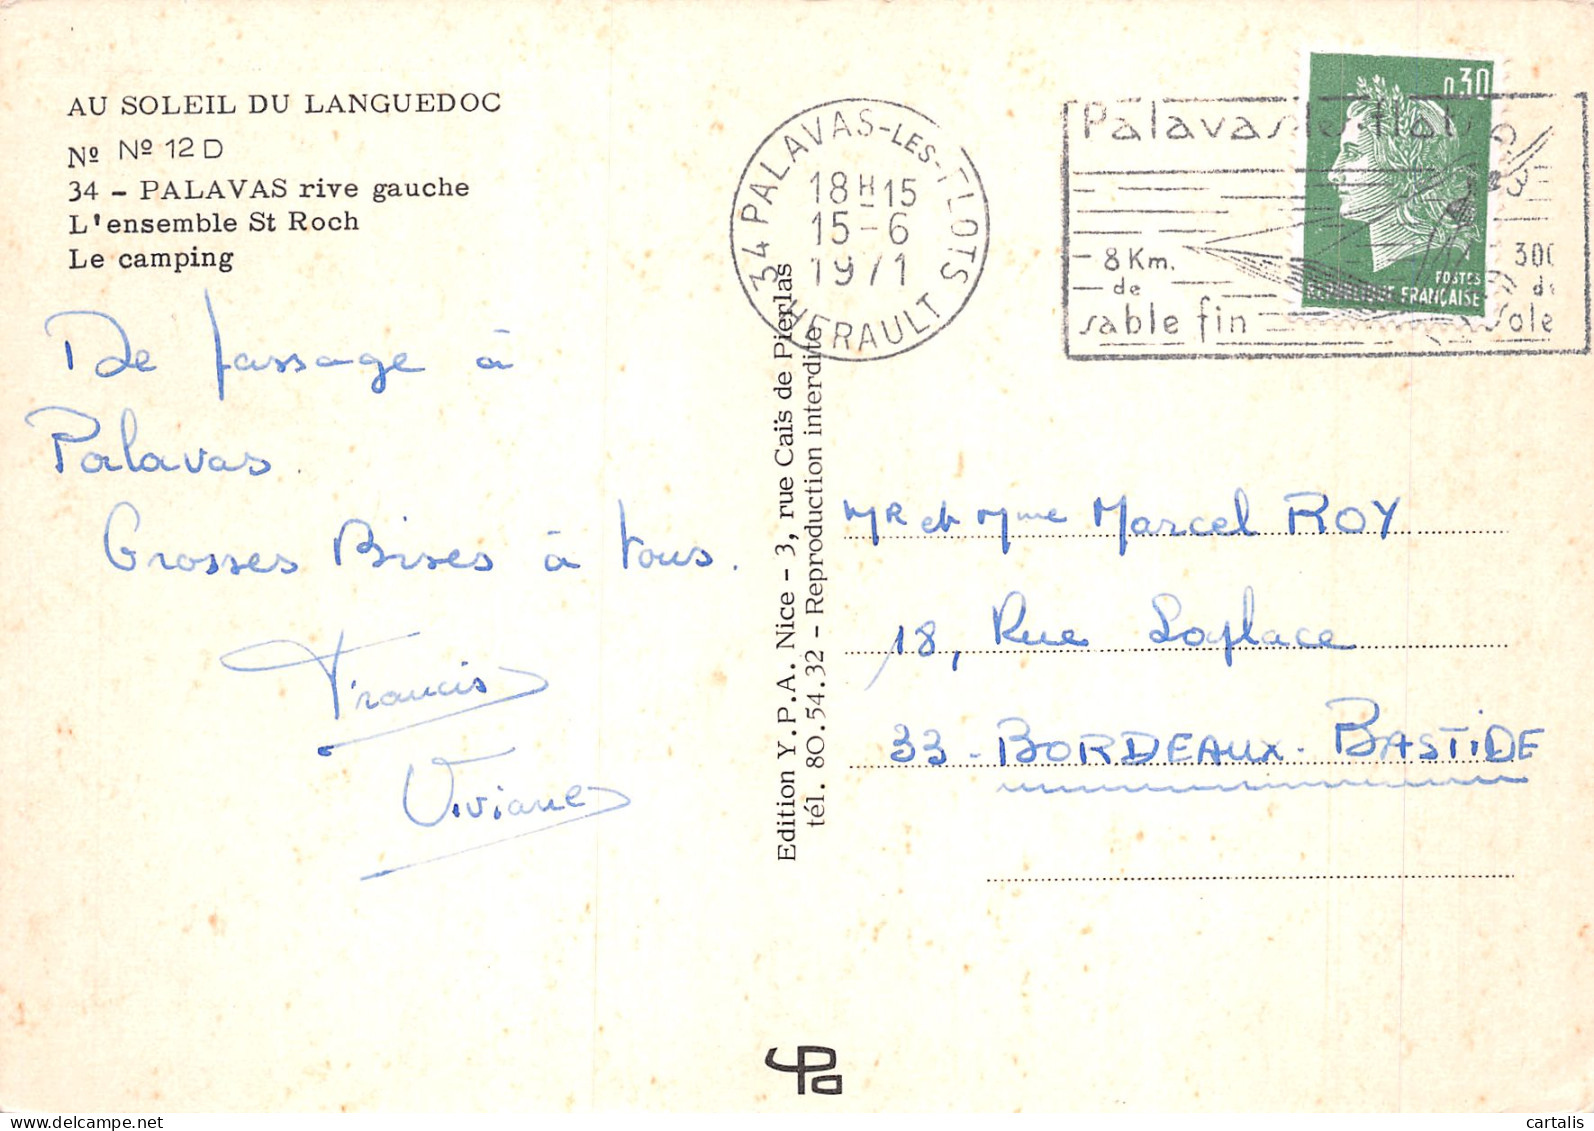 AU SOLEIL DU LANGUEDOC
Nº Nº 12 D
34 - PALAVAS rive gauche
L'ensemble St Roch
Le camping
De passage à
Palavas.
Grosses Bises à tous.
Francis
Viviane
34 PALAVAS-LES-FLOTS
18H15
15-6
1971
HERAULT
Palavas-les-flots
8 Km.
de
sable fin
300
de
Sole
0,30
POSTES
REPUBLIQUE FRANÇAISE
Edition Y.P.A. Nice - 3, rue Caïs de Pierlas
tél. 80.54.32 - Reproduction interdite
MR et Mme Marcel ROY
18, Rue Laplace
33 - BORDEAUX - BASTIDE
YPA
cartalis
www.delcampe.net